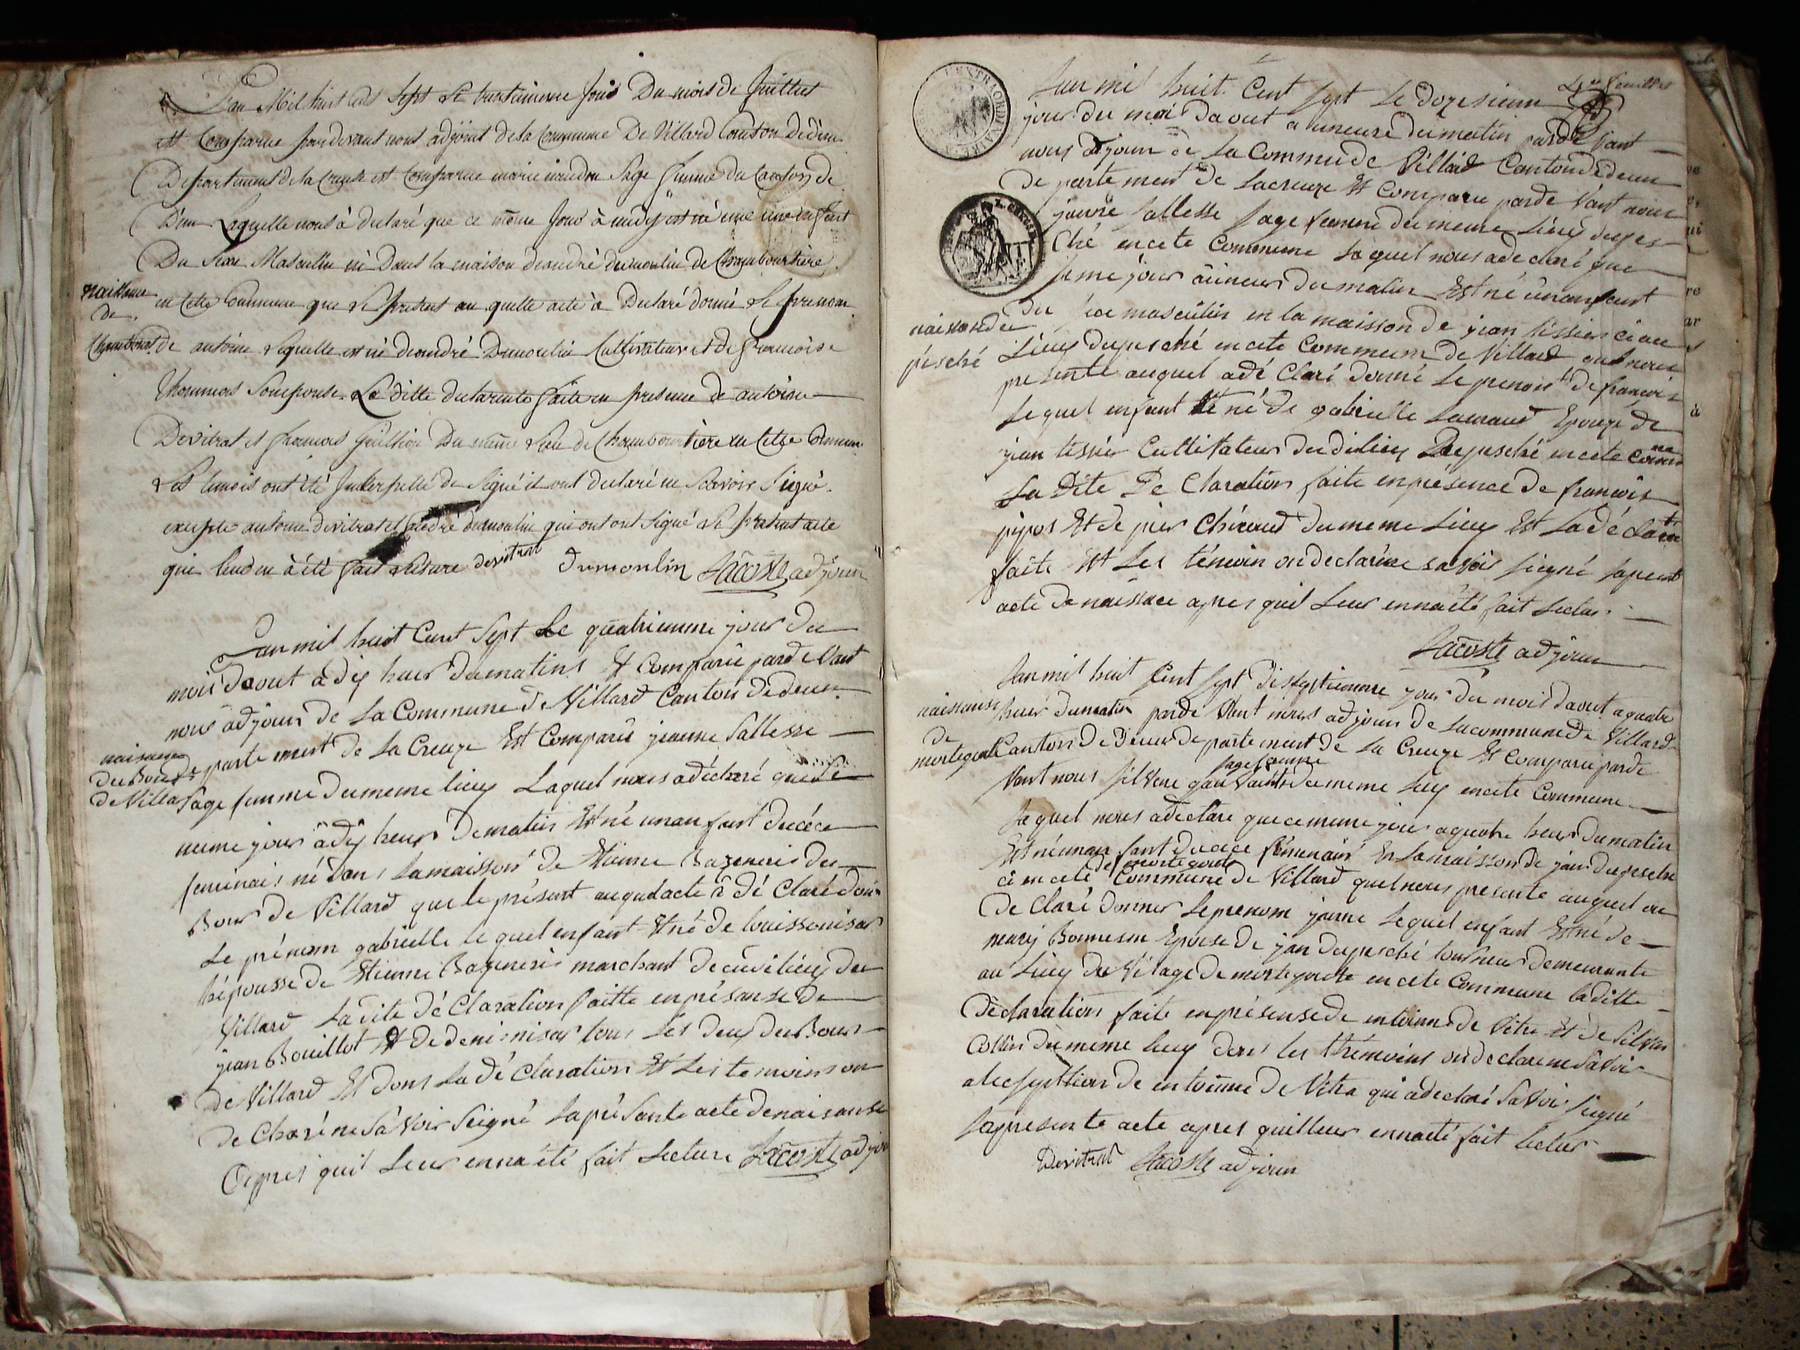 L'an Mil huit cens Sept le trentainme Jour Du mois de Juillet
est Comparue pardevant nous adjoint de la Commune De Villard Canton de dun
Departement de la Creuse est Comparue marie naudon Sage femme du Canton de
Dun Laquelle nous à declaré que ce même Jour à midy est né une enfant
Du Sexe Masculin né Dans la maison de andré dumoulin de Chamboursière
naissance
de
Chambours
en Cette Commune que le present au quelle acte à Declaré donné le prenom
de antoine lequelle est né de andré Dumoulin Cultivateur et de francoise
Thommas Son epouse. La ditte declarente faite en presence de antoine
Devitrat et francois Du même lieu de Chamboursiere en Cette Commune
Les temois ont été Interpellé de Signé et ont declaré ne Scavoir Signé
excepte antoine devitrat et andré dumoulin qui ont ont Signé le present acte
que lendeu à été fait lecture devitrat dumoulin Lacoste adjoin
Lan mil huit Cent Sept Le quatriemme jour du
mois Daout à dix heur Du matins Et Comparüe parde Vant
nous adjoin de La Commune de Villard Canton de deun
naisance
du Bourd
de Villar
departement de La Creuze Est Comparüe jeanne Sallesse
Sage femme du meme lieux Laquel nous a déclaré que le
meme jour à dix heur De matin Est né un anfant du céce
feminais né Dans La maisson de Etienne Bazeneris du
Bour de Villard que le présant auquel acte à dé Claré doné
Le prénom gabrielle le quel enfant Et né de Louisse nisar
hépousse de Etienne Bazeneris marchant de ce lieux du
Villard La dite dé Claration faitte en présanse de
jean Bouillot Et de denis nisar tous Les deux du Bour
de Villard Et dont La dé Claration Et Les temoins on
de Claré ne Sà Voir Seigné La présante acte de naisanse
Appres quil Leur enna été fait Lecture Lacoste adjoin
4me feuillet
Lan mil huit Cent Sept Le dozesieme
jour du moi Daout a uneure du matin parde Vant
nous adjoin de La Commude Villard Canton de deun
de partement de La creuze Et Comparu parde Vant nous
jeanne Sallesse Sage femme du meme Lieux du pes
Ché en cete Commune La quel nous a de claré que
le me jour à uneur du matin Est né un anfant
naisanse de
pesché
du sece masculin en la maisson de jean tissier ci au
Lieux du pesché en cete Commune de Villard quel nous
presente auquel a dé Claré donné Le prenom de francois
Le quel enfant Et né de gabrielle Lacraud Epouze de
jean tesier Cultifateur du dilieux Du pesché en cete Comme
La Dite De Claration faite en presence de francois
pipos Et de pier Chiraud du meme Lieux Est La dé Clara
faite Et Les témoin on declaré ne savoir Siegné La prent
acte de naissace apres quil Leur enna été fait Lectur
Lacoste adjoin
Lan mil huit Sent Sept dissept ieme jour du mois daout a quatre
naissanse
de
mortegoute
heur du matin parde Vant nous adjoin de La commune de Villard
Canton de Deun de partement de La Creuze Et Comparu parde
Vant nous Silvene sage femme de meme Lieux en cete Commune
La quel nous a declare que ce meme jour a quatre heur du matin
Est né un anfant Du cece feminain En La maisson de jean du pesché
ci en cete de mortegoute Commune de Villard quel nous presente auquel on
de Claré donner Le prenom janne Le quel enfant Est né de
mary Bonneson Epouse de jean du pesché tous deux demeurante
au Lieux du Vilage de mortegoute en cete Commune La ditte
Déclaration faite en présense de entoinne de Vitra Et de Silvin
Collin du meme Lieux dont Les thémoins on declare ne Sà Voir
a lecseption de entoinne de Vitra qui a declaré Sa Voir Siegné
La presente acte apres quilleur enna été fait lectur
Devitrat Lacoste adjoin